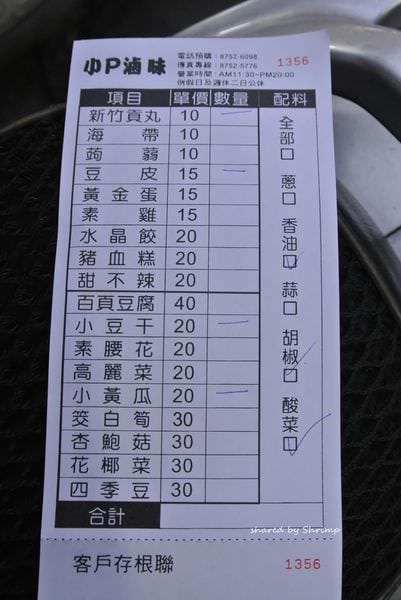 小P滷味
電話預購：8752-6098
傳真專線：8752-5776
營業時間：AM11:30~PM20:00
例假日及週休二日公休
1356
項目 單價 數量 配料
新竹貢丸 10 一
海帶 10
蒟蒻 10
豆皮 15 一
黃金蛋 15
素雞 15
水晶餃 20
豬血糕 20
甜不辣 20
百頁豆腐 40
小豆干 20 一
素腰花 20
高麗菜 20
小黃瓜 20 一
筊白筍 30
杏鮑菇 30
花椰菜 30
四季豆 30
合計
全部□
蔥□
香油□
蒜□
胡椒□
酸菜□
shared by Shrimp
客戶存根聯 1356